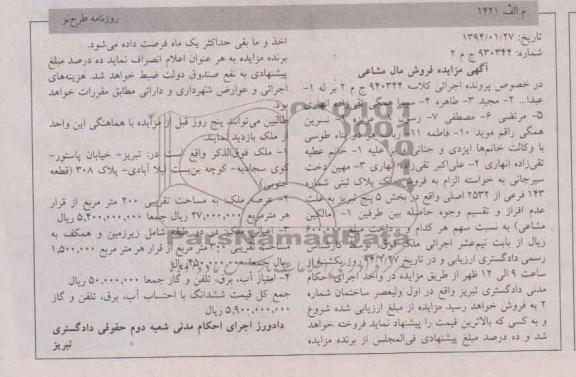 م الف ۱۴۲۱
روزنامه طرح‌نو
تاریخ: ۱۳۹۴/۰۱/۲۷
شماره: ۹۳۰۳۴۴ ج م ۲
آگهی مزایده فروش مال مشاعی
در خصوص پرونده اجرائی کلاسه ۹۴۰۳۴۴ ج م ۲ بر له ۱-
عبدا... ۲- مجید ۳- طاهره ۴- همگی تقی‌زاده انهاری
۵- مرتضی ۶- مصطفی ۷- نسرین
همگی راقم موید ۱۰- فاطمه ۱۱- پناه طوسی
با وکالت خانم‌ها ایزدی و جنانی بر علیه ۱- خانم عطیه
تقی‌زاده انهاری ۲- علی‌اکبر تقی‌زاده انهاری ۳- مهین‌دخت
سیرجانی به خواسته الزام به فروش ملک پلاک ثبتی شماره
۱۴۳ فرعی از ۲۵۳۲ اصلی واقع در بخش ۵ پنج تبریز به علت
عدم افراز و تقسیم وجوه حاصله بین طرفین (مالکین
مشاعی) به نسبت سهم هر کدام و پرداخت مبلغ
ریال از بابت نیم‌عشر اجرائی ملک فوق توسط کارشناس
رسمی دادگستری ارزیابی و در تاریخ ۹۴/۲/۲۷ روز یکشنبه از
ساعت ۹ الی ۱۲ ظهر از طریق مزایده در واحد اجرای احکام
مدنی دادگستری تبریز واقع در اول ولیعصر ساختمان شماره
۲ به فروش خواهد رسید مزایده از مبلغ ارزیابی شده شروع
و به کسی که بالاترین قیمت را پیشنهاد نماید فروخته خواهد
شد و ده درصد مبلغ پیشنهادی فی‌المجلس از برنده مزایده
اخذ و ما بقی حداکثر یک ماه فرصت داده می‌شود.
برنده مزایده به هر عنوان اعلام انصراف نماید ده درصد مبلغ
پیشنهادی به نفع صندوق دولت ضبط خواهد شد. هزینه‌های
اجرائی و عوارض شهرداری و دارائی مطابق مقررات خواهد
بود.
طالبین می‌توانند پنج روز قبل از مزایده با هماهنگی این واحد
از ملک بازدید نمایند.
۱- ملک فوق‌الذکر واقع است در: تبریز- خیابان پاستور-
کوی سجادیه- کوچه بن‌بست لیلا آبادی- پلاک ۳۰۸ (قطعه
جنوبی)
۲- عرصه ملک به مساحت تقریبی ۲۰۰ متر مربع از قرار
هر مترمربع ۲۷,۰۰۰,۰۰۰ ریال جمعا ۵,۴۰۰,۰۰۰,۰۰۰ ریال
۳- اعیانی ملک در دو طبقه شامل زیرزمین و همکف به
تقریبی ۳۰۰ متر مربع از قرار هر متر مربع ۱,۵۰۰,۰۰۰
ریال جمعا ۴۵۰,۰۰۰,۰۰۰ ریال
۴- امتیاز آب، برق، تلفن و گاز جمعا ۵۰,۰۰۰,۰۰۰ ریال
جمع کل قیمت ششدانگ با احتساب آب، برق، تلفن و گاز
۵,۹۰۰,۰۰۰,۰۰۰ ریال
دادورز اجرای احکام مدنی شعبه دوم حقوقی دادگستری
تبریز
ParsNamadData